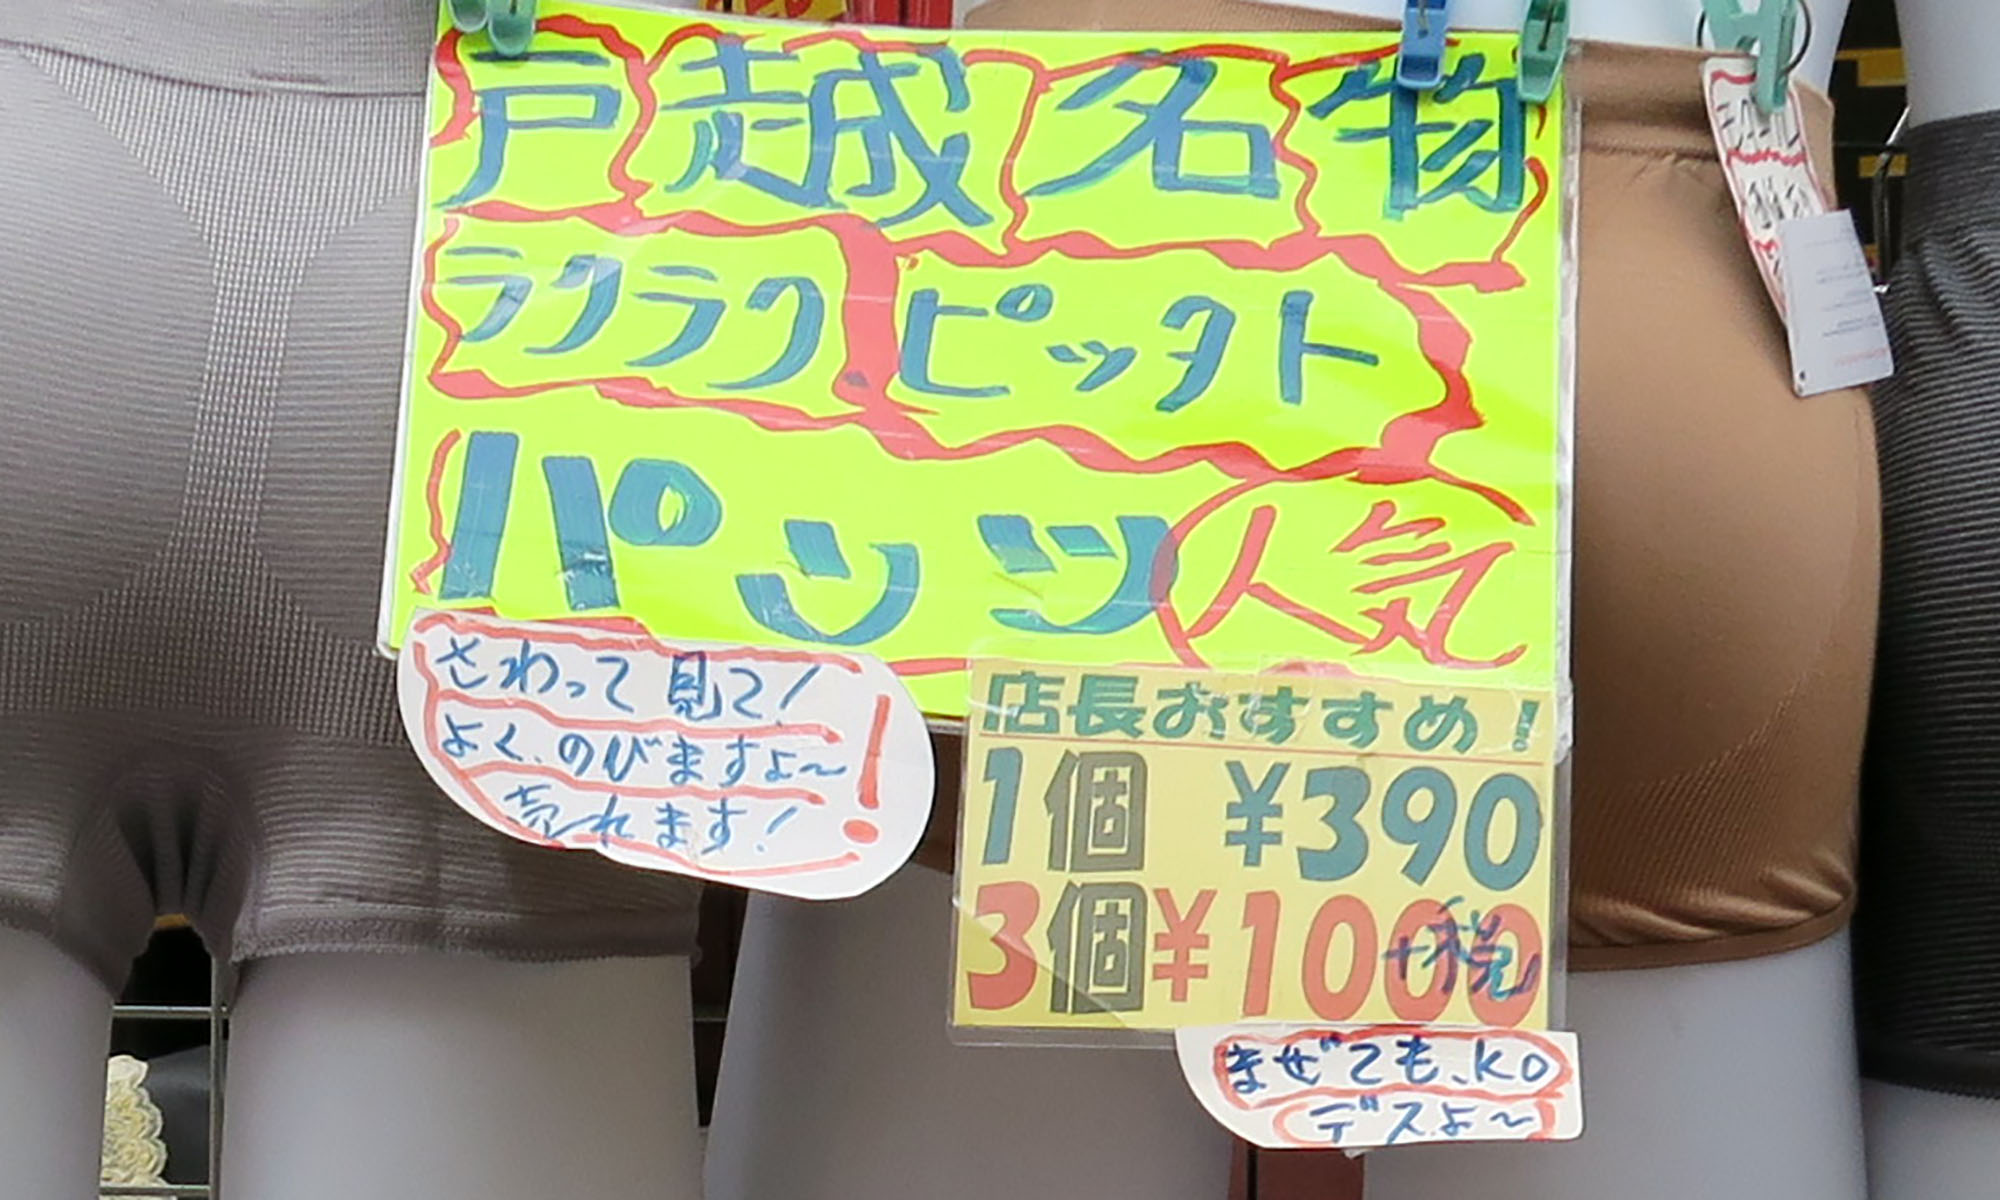 戸越名物
ラクラクピッタト
パンツ人気
さわって見て!
よく、のびますよ〜
売れます!
!
店長おすすめ!
1個 ¥390
3個¥1000
+税
まぜても、KO
デスよ〜